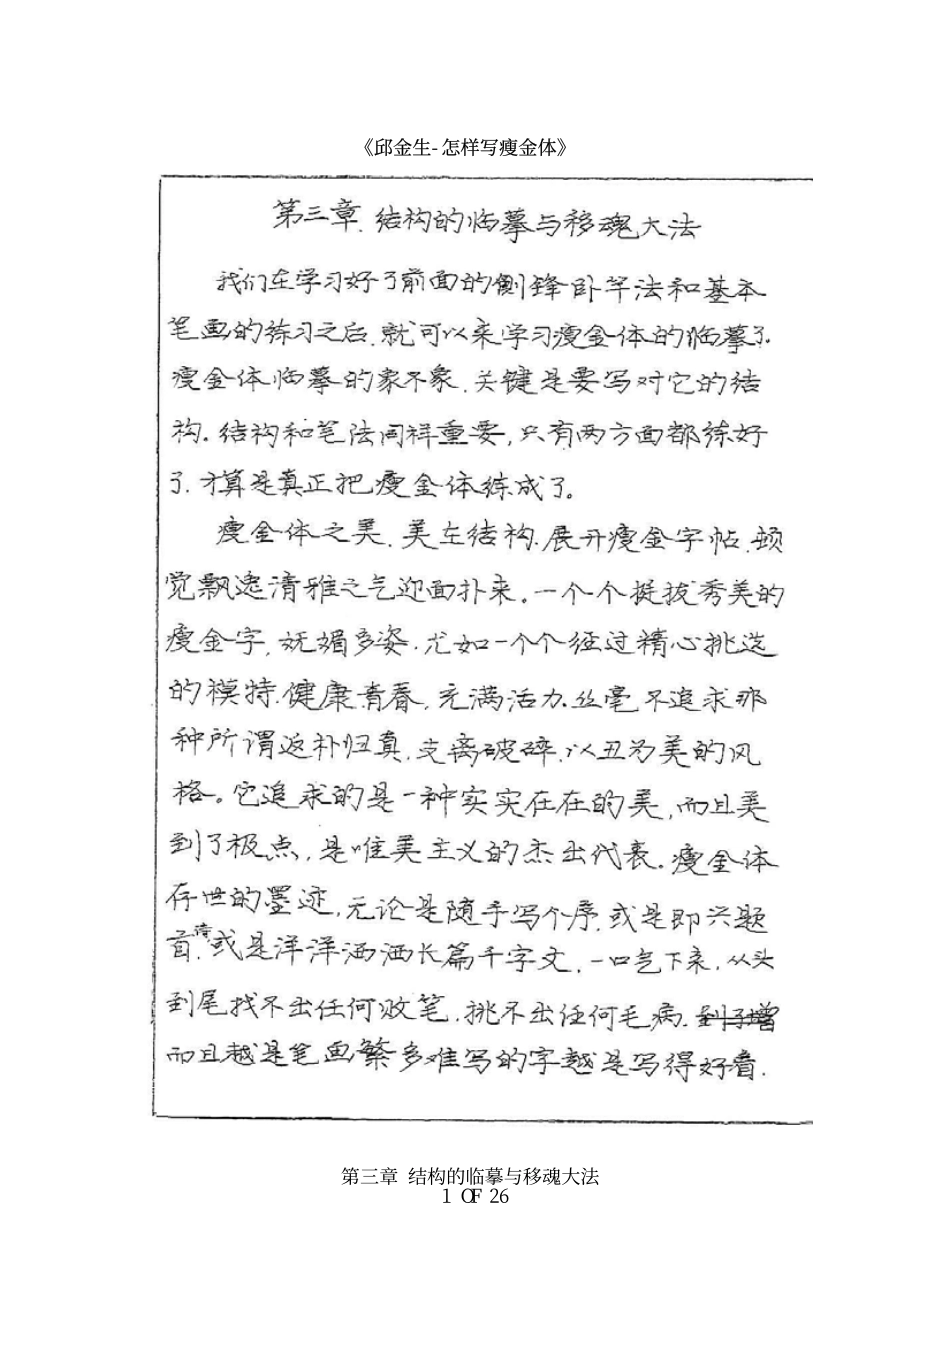 《邱金生-怎样写瘦金体》
第三章.结构的临摹与移魂大法
我们在学习好了前面的侧锋卧竿法和基本
笔画的练习之后.就可以来学习瘦金体的临摹了.
瘦金体临摹的象不象.关键是要写对它的结
构。结构和笔法同样重要,只有两方面都练好
了.才算是真正把瘦金体练成了。
瘦金体之美.美在结构.展开瘦金字帖.顿
觉飘逸清雅之气迎面扑来。一个个挺拔秀美的
瘦金字,妩媚多姿.尤如一个个经过精心挑选
的模特.健康青春.充满活力.丝毫不追求那
种所谓返朴归真.支离破碎.以丑为美的风
格。它追求的是一种实实在在的美,而且美
到了极点.是唯美主义的杰出代表。瘦金体
存世的墨迹,无论是随手写个序.或是即兴题
首诗.或是洋洋洒洒长篇千字文.一口气下来.从头
到尾找不出任何败笔.挑不出任何毛病.到了增
而且越是笔画繁多难写的字越是写得好看.
第三章 结构的临摹与移魂大法
1 OF 26